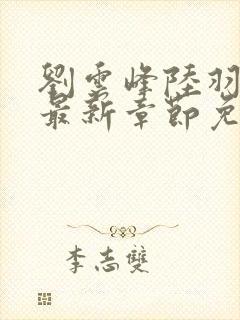 劉雲峰陸羽
最新章節免
李志雙